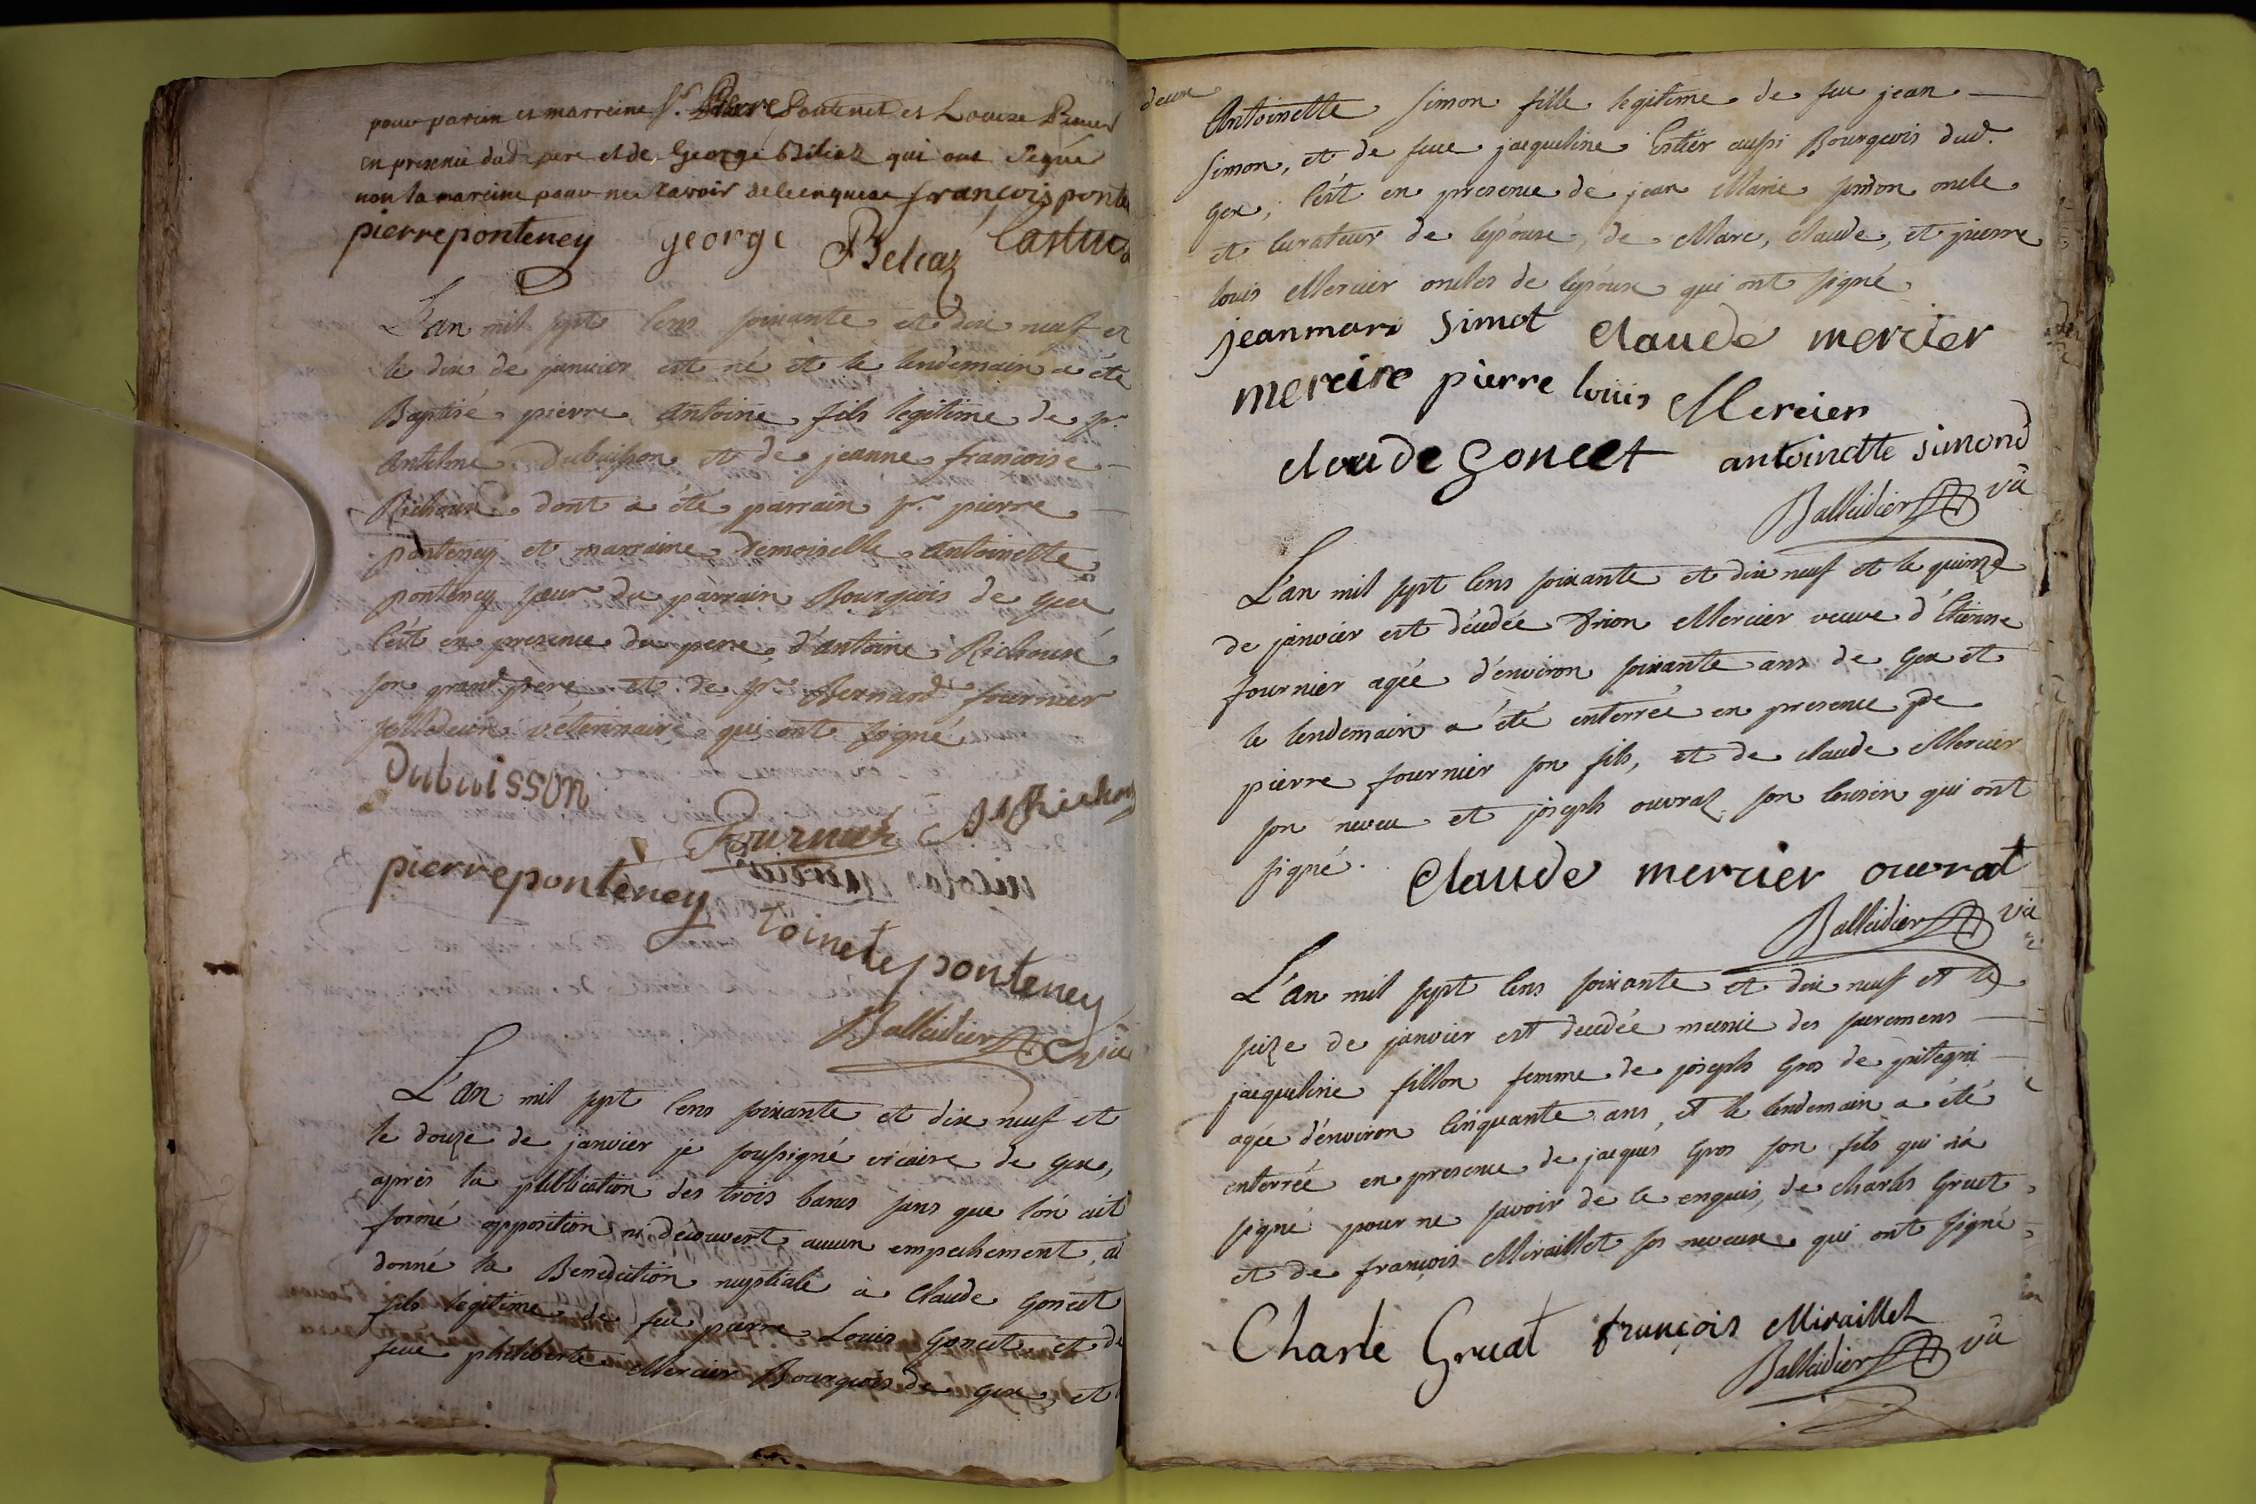 pour parrin et marreine Sr. Pierre Pontenet et Louize
en presence dud. pere et de George Béliaz qui ont signé
non la mareine pour ne savoir de ce enquise françois ponte
pierre ponteney george Beliaz Castin
L'an mil sept cens soixante et dix neuf et
le dix de janvier est né et le lendemain a été
Baptisé pierre Antoine fils legitime de sr.
Antelme Dubuisson et de jeanne françoise
Richoux dont a été parrain sr. pierre
ponteney et marraine Demoiselle Antoinette
ponteney sœur du parrain Bourgeois de gex
C'est en presence du pere, d'antoine Richoux
son grand pere, et de sr. Bernard fournier
Medecin véterinaire qui ont signé
Dubuisson
Fournier
pierre ponteney
toinete ponteney
Balleidier vic
L'an mil sept cens soixante et dix neuf et
le douze de janvier je soussigné vicaire de gex,
après la publication des trois bancs sans que l'on ait
formé opposition ni découvert aucun empechement, ai
donné la Benediction nuptiale à Claude goncet
fils legitime de feu pierre Louis goncet et de
feue philiberte Mercier Bourgeois de gex et
deux
Antoinette simon fille legitime de feu jean
simon, et de feue jaqueline Estier aussi Bourgeois dud.
gex, C'est en presence de jean Marie simon oncle
et Curateur de l'epouse, de Marc, claude, et pierre
louis Mercier oncles de l'epoux qui ont signé
jean mari simot Claude mercier
mercire pierre louis Mercier
cloude goncet antoinette simond
Balleidier vic
L'an mil sept cens soixante et dix neuf et le quinze
de janvier est décédée Mercier veuve d'Etienne
fournier agée d'environ soixante ans de gex et
le lendemain a été enterrée en presence de
pierre fournier son fils, et de claude Mercier
son neveu et joseph ouvraz son Cousin qui ont
signé. Claude mercier ouvrat
Balleidier vic
L'an mil sept cens soixante et dix neuf et le
seize de janvier est decedée munie des sacremens
jaqueline fillon femme de joseph gros de pitegni
agée d'environ Cinquante ans, et le lendemain a été
enterrée en presence de jacques gros son fils qui n'a
signé pour ne savoir de ce enquis, de charles Gruet
et de françois Miraillet ses neveux qui ont signé
Charle Gruat françois Miraillet
Balleidier vic